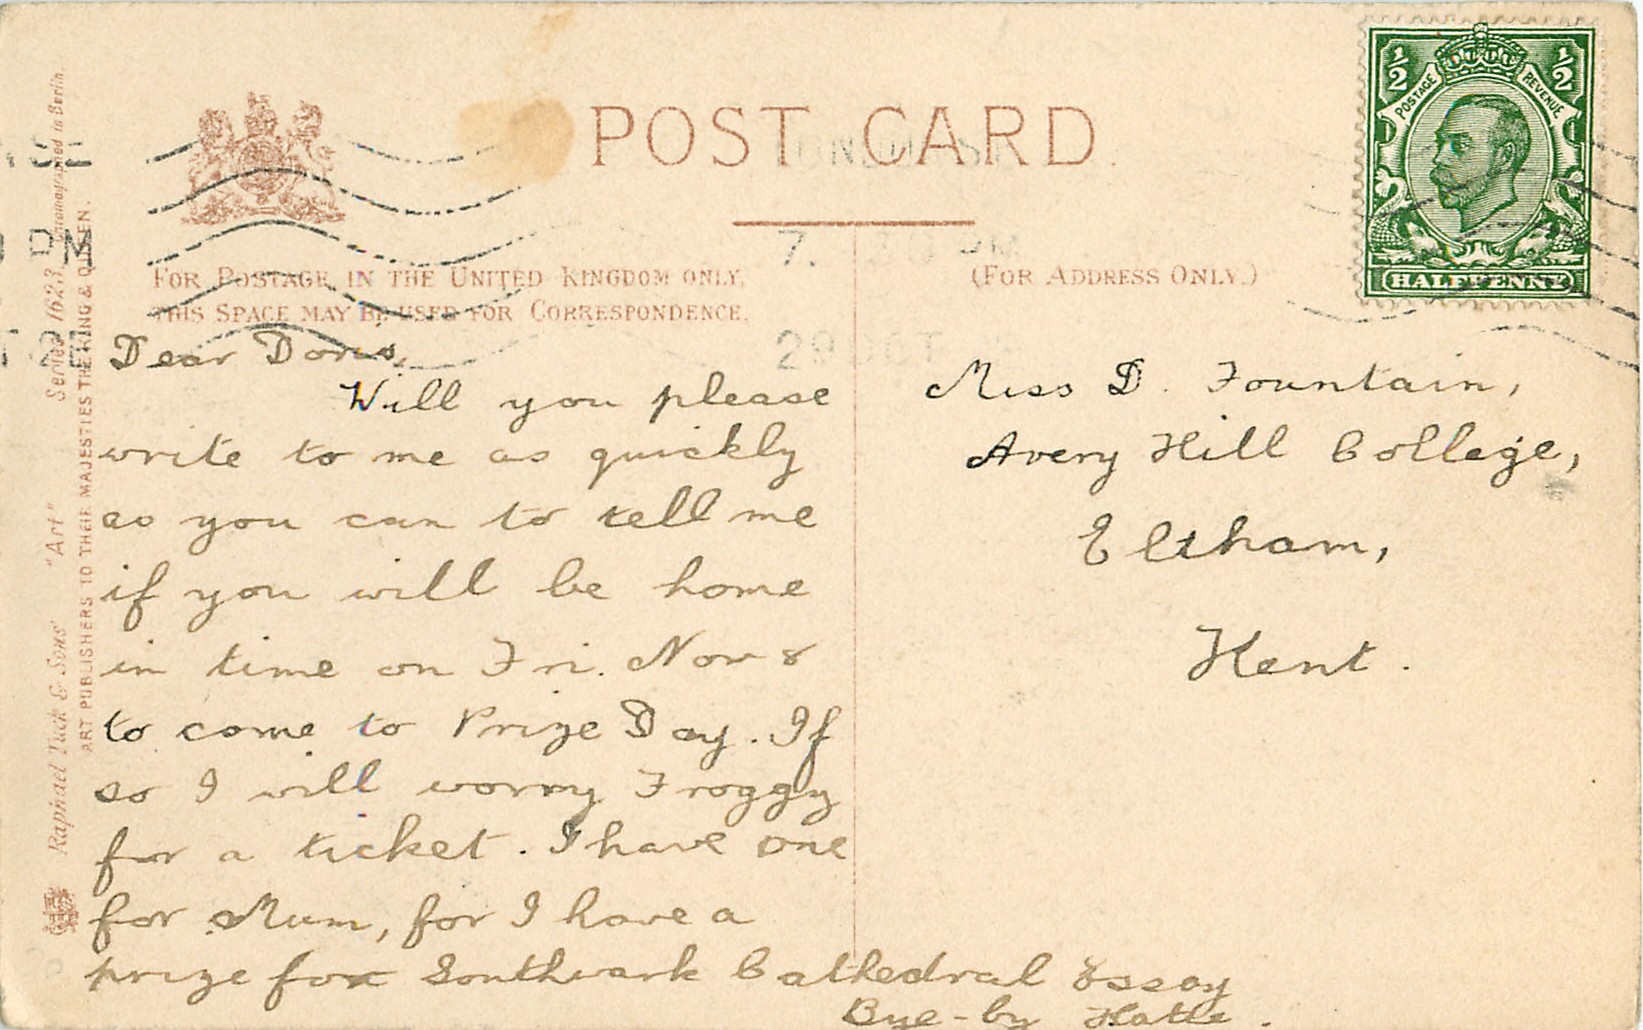 POST CARD.
FOR POSTAGE IN THE UNITED KINGDOM ONLY,
THIS SPACE MAY BE USED FOR CORRESPONDENCE.
(FOR ADDRESS ONLY.)
½ ½
POSTAGE REVENUE
HALFPENNY
7. PM
29 OCT
PM
Raphael Tuck & Sons' "Art" Series 1623. in Berlin.
ART PUBLISHERS TO THEIR MAJESTIES THE KING & QUEEN.
Dear Doris,
Will you please
write to me as quickly
as you can to tell me
if you will be home
in time on Fri. Nov 8
to come to Prize Day. If
so I will worry Froggy
for a ticket. I have one
for Mum, for I have a
prize for Southwark Cathedral Essay
Bye-by
Miss D. Fountain,
Avery Hill College,
Eltham,
Kent.